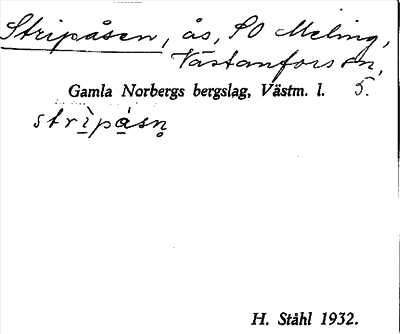 Stripåsen, ås, SO Meling,
Västanfors sn,
Gamla Norbergs bergslag, Västm. l. 5.
strìpåsn̥
H. Ståhl 1932.